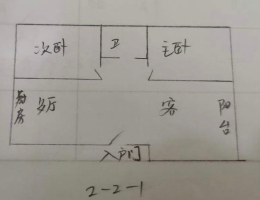 次卧
卫
主卧
厨房
餐厅
客
阳台
入户门
2-2-1